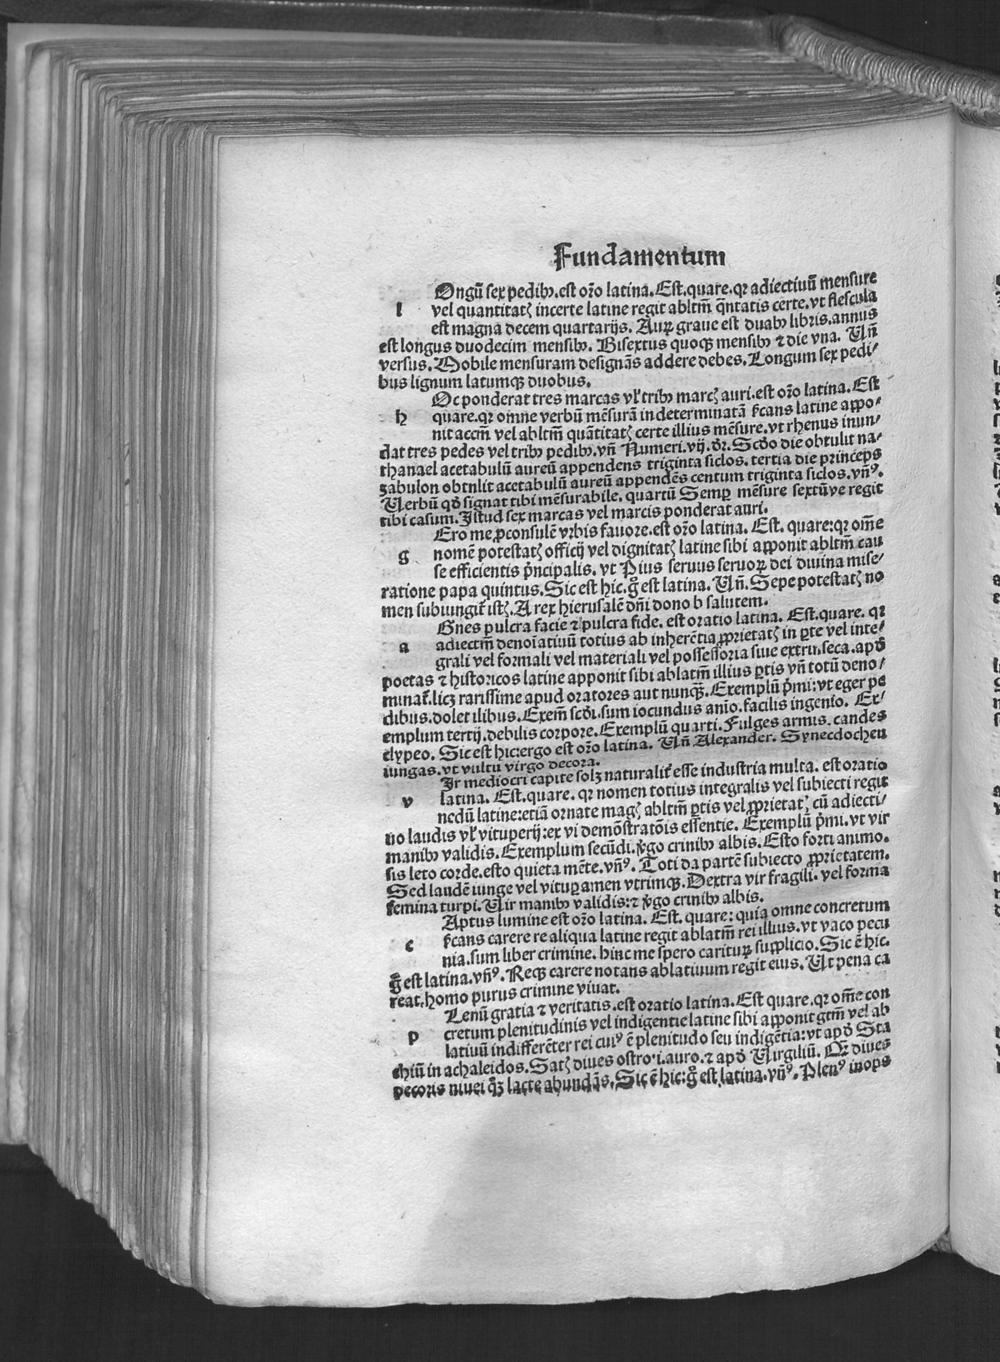 Fundamentum
l Ongū sex pedibꝰ.est orõ latina.Est.quare.qꝛ adiectiuū mensure
vel quantitatꝭ incerte latine regit abltm̄ q̄ntatis certe.vt fiescula
est magna decem quartarijs. Auꝝ graue est duabꝰ libris.annus
est longus duodecim mensibꝰ. Bisextus quoqꝫ mensibꝰ ⁊ die vna. Uñ
versus. Mobile mensuram designãs addere debes. Longum sex pedi⸗
bus lignum latumqꝫ duobus.
h Oc ponderat tres marcas vl̓ tribꝰ marcꝭ auri.est orõ latina. Est
quare.qꝛ omne verbū mẽsurã indeterminatã ẜcans latine appo⸗
nit accm̄ vel abltm̄ quãtitatꝭ certe illius mẽsure.vt rhenus inun⸗
dat tres pedes vel tribꝰ pedibꝰ.vñ Numeri.vij.dr̄. Scd̓o die obtulit na⸗
thanael acetabulū aureū appendens triginta siclos. tertia die princeps
zabulon obtnlit acetabulū aureū appendẽs centum triginta siclos.vñꝰ.
Uerbū qd̓ signat tibi mẽsurabile. quartū Semꝑ mẽsure sextūve regit
tibi casum. Istud sex marcas vel marcis ponderat auri.
g Ero me ꝓconsulẽ vrbis fauore.est orõ latina. Est. quare:qꝛ om̄e
nomẽ potestatꝭ officij vel dignitatꝭ latine sibi apponit abltm̄ cau
se efficientis p̄ncipalis. vt Pius seruus seruoꝝ dei diuina mise⸗
ratione papa quintus. Sic est hic.g̊ est latina. Uñ. Sepe potestatꝭ no
men subiungit̉ istꝭ. A rex hierusalẽ dn̄i dono b salutem.
a Gnes pulcra facie ⁊ pulcra fide. est oratio latina. Est.quare. qꝛ
adiectm̄ denoīatiuū totius ab inherẽtia ꝓprietatꝭ in ꝑte vel inte⸗
grali vel formali vel materiali vel possessoria siue extrinseca.apd̓
poetas ⁊ historicos latine apponit sibi ablatm̄ illius ꝑtis vñ totū deno⸗
minat̉.licꝫ rarissime apud oratores aut nunqꝫ. Exemplū p̄mi:vt eger pe
dibus.dolet ilibus. Exem̄ scd̓i.sum iocundus anīo.facilis ingenio. Ex⸗
emplum tertij.debilis corpore. Exemplū quarti. Fulges armis. candes
clypeo. Sic est hic:ergo est orõ latina. Uñ Alexander. Synecdochen
iungas.vt vultu virgo decora.
v Ir mediocri capite solꝫ naturalit̉ esse industria multa. est oratio
latina. Est.quare. qꝛ nomen totius integralis vel subiecti regit
nedū latine:etiã ornate magꝭ abltm̄ ꝑtis vel ꝓprietatꝭ cū adiecti⸗
uo laudis vl̓ vituperij:ex vi demõstratõis essentie. Exemplū p̄mi.vt vir
manibꝰ validis. Exemplum secūdi.v̓go crinibꝰ albis. Esto forti animo.
sis leto corde.esto quieta mẽte.vñꝰ. Toti da partẽ subiecto ꝓprietatem.
Sed laudẽ iunge vel vituꝑamen vtrimqꝫ. Dextra vir fragili. vel forma
femina turpi. Uir manibꝰ validis:⁊ v̓go crinibꝰ albis.
c Aptus lumine est orõ latina. Est. quare: quia omne concretum
ẜcans carere re aliqua latine regit ablatm̄ rei illius.vt vaco pecu
nia.sum liber crimine. hinc me spero carituꝝ supplicio. Sic ẽ hic.
g̊ est latina.vñꝰ. Reqꝫ carere notans ablatiuum regit eius. Ut pena ca
reat.homo purus crimine viuat.
p Lenū gratia ⁊ veritatis.est oratio latina. Est quare.qꝛ om̄e con
cretum plenitudinis vel indigentie latine sibi apponit gtm̄ vel ab
latiuū indifferẽter rei cuiꝰ ẽ plenitudo seu indigẽtia:vt apd̓ Sta
chiū in achaleidos. Satꝭ diues ostro.i.auro.⁊ apd̓ Uirgiliū. Qꝛ diues
pecoris niuei qꝫ lacte abundãs. Sic ẽ hic:g̊ est latina.vñꝰ. Plenꝰ inops